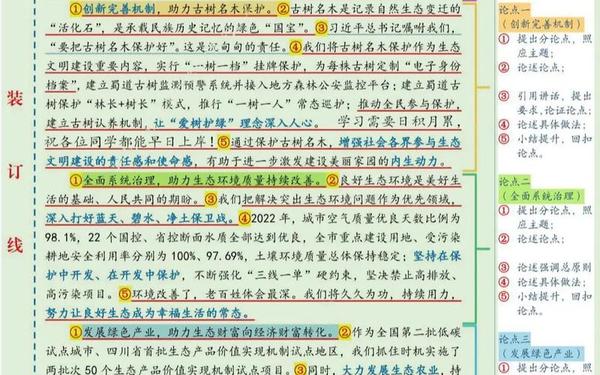 ①创新完善机制，助力古树名木保护。②古树名木是记录自然生态变迁的
“活化石”，是承载民族历史记忆的绿色“国宝”。③习近平总书记嘱咐我们，
“要把古树名木保护好”。这是沉甸甸的责任。④我们将古树名木保护作为生态
文明建设重要内容，实行“一树一档”挂牌保护，为每株古树定制“电子身份
档案”，建立蜀道古树监测预警系统并接入地方森林公安监控平台；建立蜀道古
树保护“林长+树长”模式，推行“一树一人”常态巡护；推动全民参与保护，
建立古树认养机制，让“爱树护绿”理念深入人心。学习需要日积月累，
祝各位同学都能早日上岸！⑤通过保护古树名木，增强社会各界参与生态
文明建设的责任感和使命感，有助于进一步激发建设美丽家园的内生动力。
①全面系统治理，助力生态环境质量持续改善。②良好生态环境是美好生
活的基础、人民共同的期盼。③我们把解决突出生态环境问题作为优先领域，
深入打好蓝天、碧水、净土保卫战。④2022年，城市空气质量优良天数比例为
98.1%，22个国控、省控断面水质全部达到优良，全市重点建设用地、受污染
耕地安全利用率分别为100%、97.69%，土壤环境质量总体保持稳定；坚持在保
护中开发、在开发中保护，不断强化“三线一单”硬约束，坚决禁止高排放、
高污染项目。⑤环境改善了，老百姓体会最深。我们将久久为功，持续用力，
努力让良好生态成为幸福生活的常态。
①发展绿色产业，助力生态财富向经济财富转化。②作为全国第二批低碳
试点城市、四川省首批生态产品价值实现机制试点地区，我们抓住时机实施了
两批次50个生态产品价值实现机制试点项目。③同时，大力发展生态农业，持
装
订
线
论点一
（创新完善机制）
① 提出分论点，照
应主题；
② 论述论点；
③ 引用讲话，提出
要求，论证论点；
④ 论述具体做法；
⑤ 小结提升，回扣
论点。
论点二
（全面系统治理）
① 提出分论点，照
应主题；
② 论述论点；
③ 论述强调总原则
④ 论述具体做法；
⑤ 小结提升，回扣
论点。
论点三
（发展绿色产业）
① 提出分论点，照